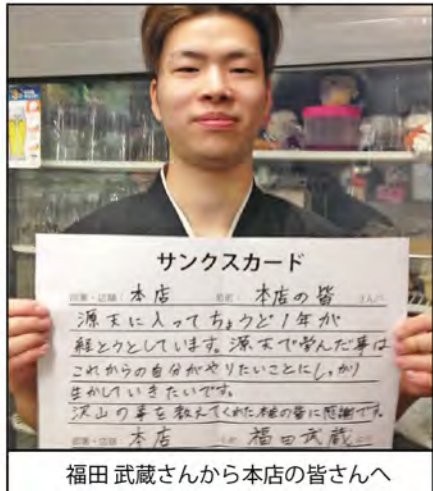 サンクスカード
部署・店舗 本店 名前 本店の皆 さんへ
源天に入ってちょうど1年が
経とうとしています。源天で学んだ事は
これからの自分がやりたいことにしっかり
生かしていきたいです。
沢山の事を教えてくれた本店の皆に感謝です。
部署・店舗 本店 名前 福田武蔵 より
福田 武蔵さんから本店の皆さんへ